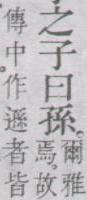 之子曰孫。
爾雅
焉。故
傳中作遜者皆